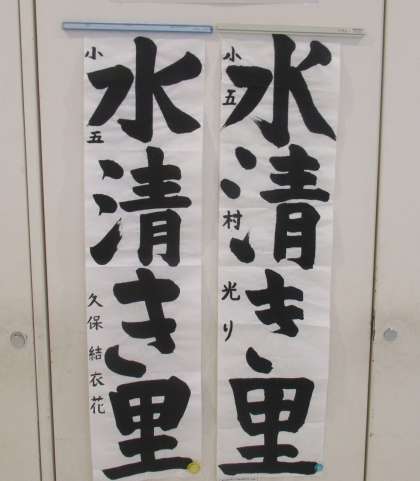 水清き里
小五 村 光り
水清き里
小五 久保 結衣花